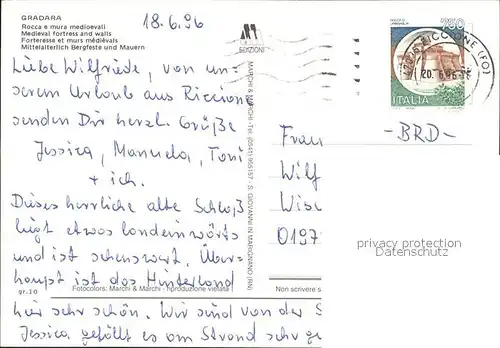 GRADARA
Rocca e mura medioevali
Medieval fortress and walls
Forteresse et murs médiévals
Mittelalterlich Bergfeste und Mauern
18.6.96
EDIZIONI
750
RICCIONE (FO)
20.6.96
ITALIA
Liebe Wilfriede, von un-
serem Urlaub aus Riccion
senden Dir herzl. Grüße
Jessica, Manuela, Toni
+ ich.
Dieses herrliche alte Schloß
liegt etwas landeinwärts
und ist sehenswert. Über-
haupt ist das Hinterland
hier sehr schön. Wir sind von der S
Jessica gefällt es am Strand sehr g
gr.20
Fotocolors: Marchi & Marchi - riproduzione vietata
MARCHI & MARCHI - Tel. (0541) 955157 - S. GIOVANNI IN MARIGNANO (RN)
Non scrivere s
- BRD -
Frau
Wilf
Wise
0197
privacy protection
Datenschutz